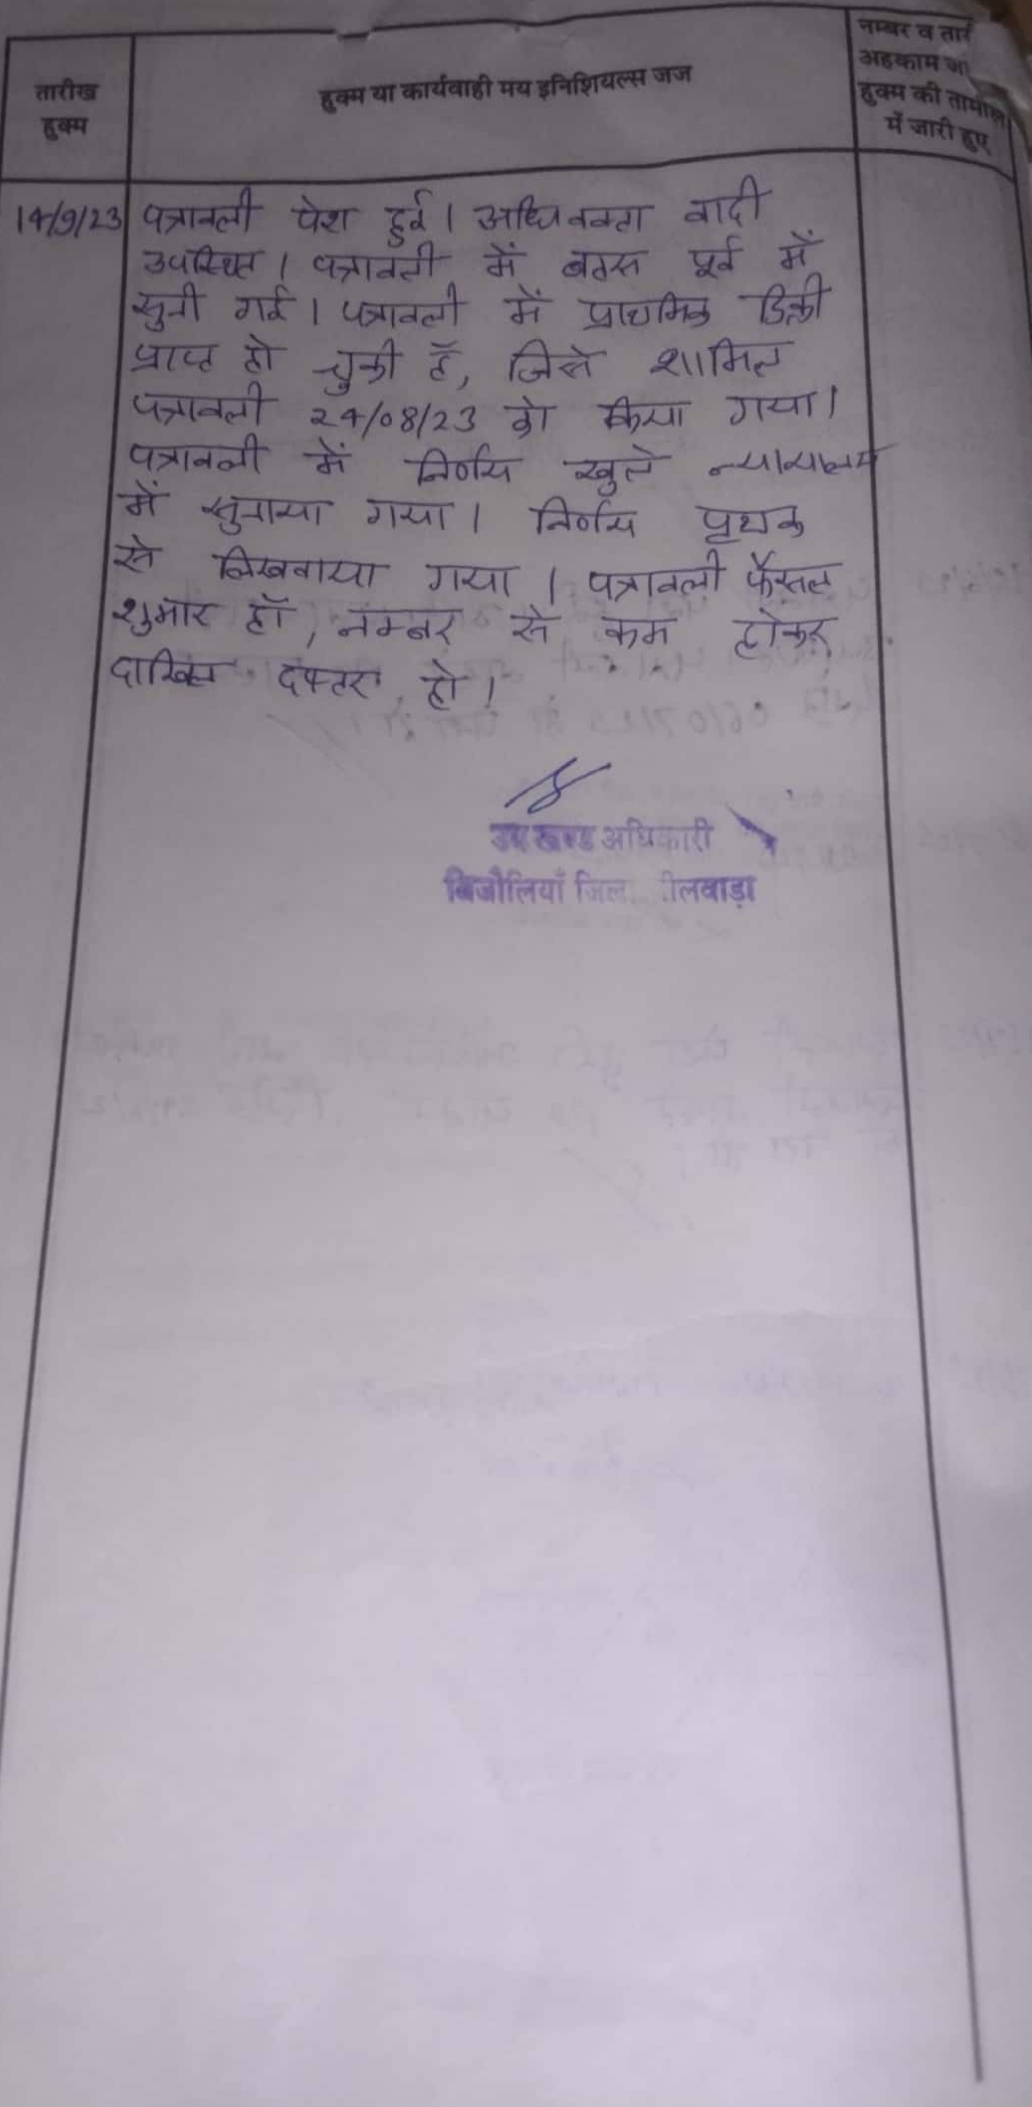 तारीख
हुक्म
हुक्म या कार्यवाही मय इनिशियल्स जज
नम्बर व तारी
अहकाम जो
हुक्म की तामील
में जारी हुए
14/9/23 पत्रावली पेश हुई। अधिवक्ता वादी
उपस्थित। पत्रावली में बहस पूर्व में
सुनी गई। पत्रावली में प्राथमिक डिक्री
प्राप्त हो चुकी हैं, जिसे शामिल
पत्रावली 24/08/23 को किया गया।
पत्रावली में निर्णय खुले न्यायालय
में सुनाया गया। निर्णय पृथक
से लिखवाया गया। पत्रावली फैसल
शुमार हों, नम्बर से कम होकर
दाखिल दफ्तर हो।
उप खण्ड अधिकारी
बिजौलियाँ जिला ीलवाड़ा